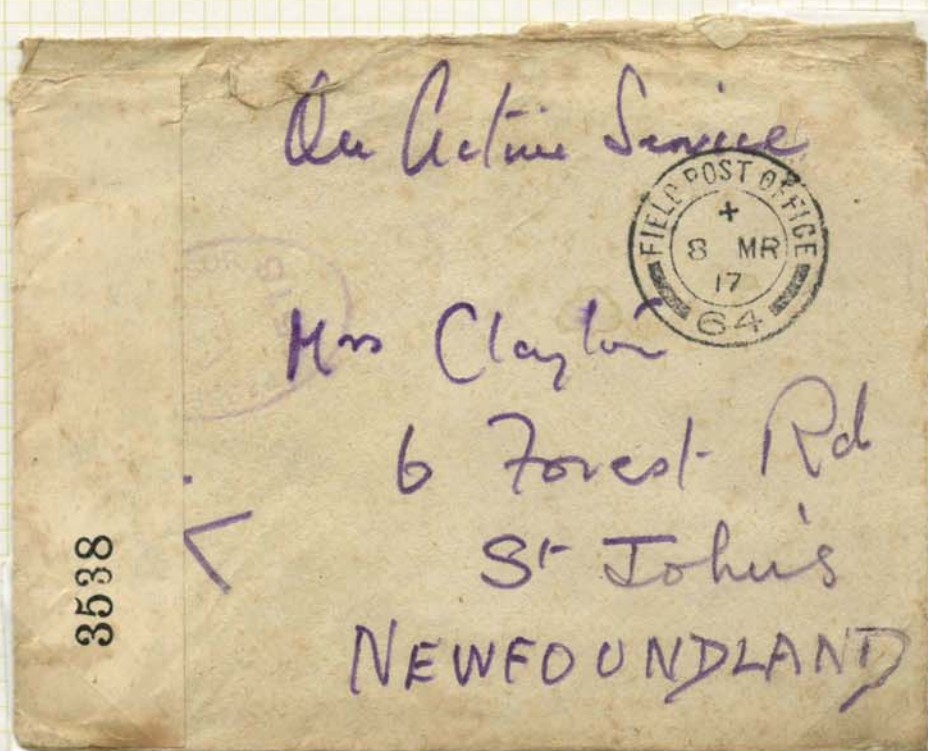 On Active Service
FIELD POST OFFICE
+
8 MR
17
64
Mrs Clayton
6 Forest Rd
St John's
NEWFOUNDLAND
3538